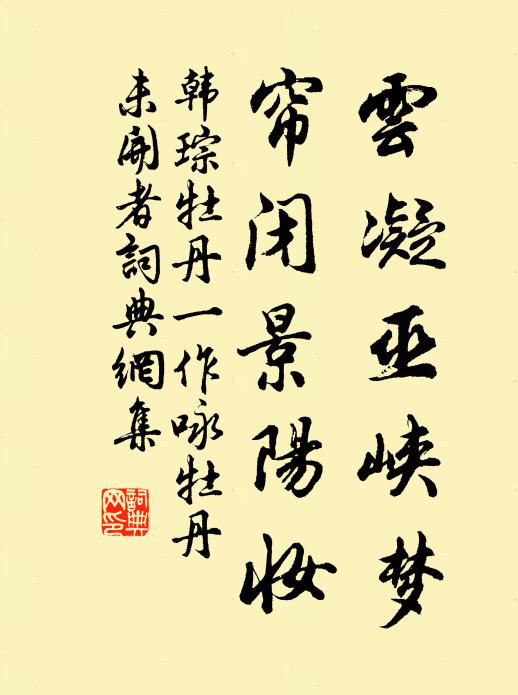 雲凝巫峡梦
帘闭景陽妆
韩琮牡丹一作咏牡丹
未開者詞典網集
詞典網印